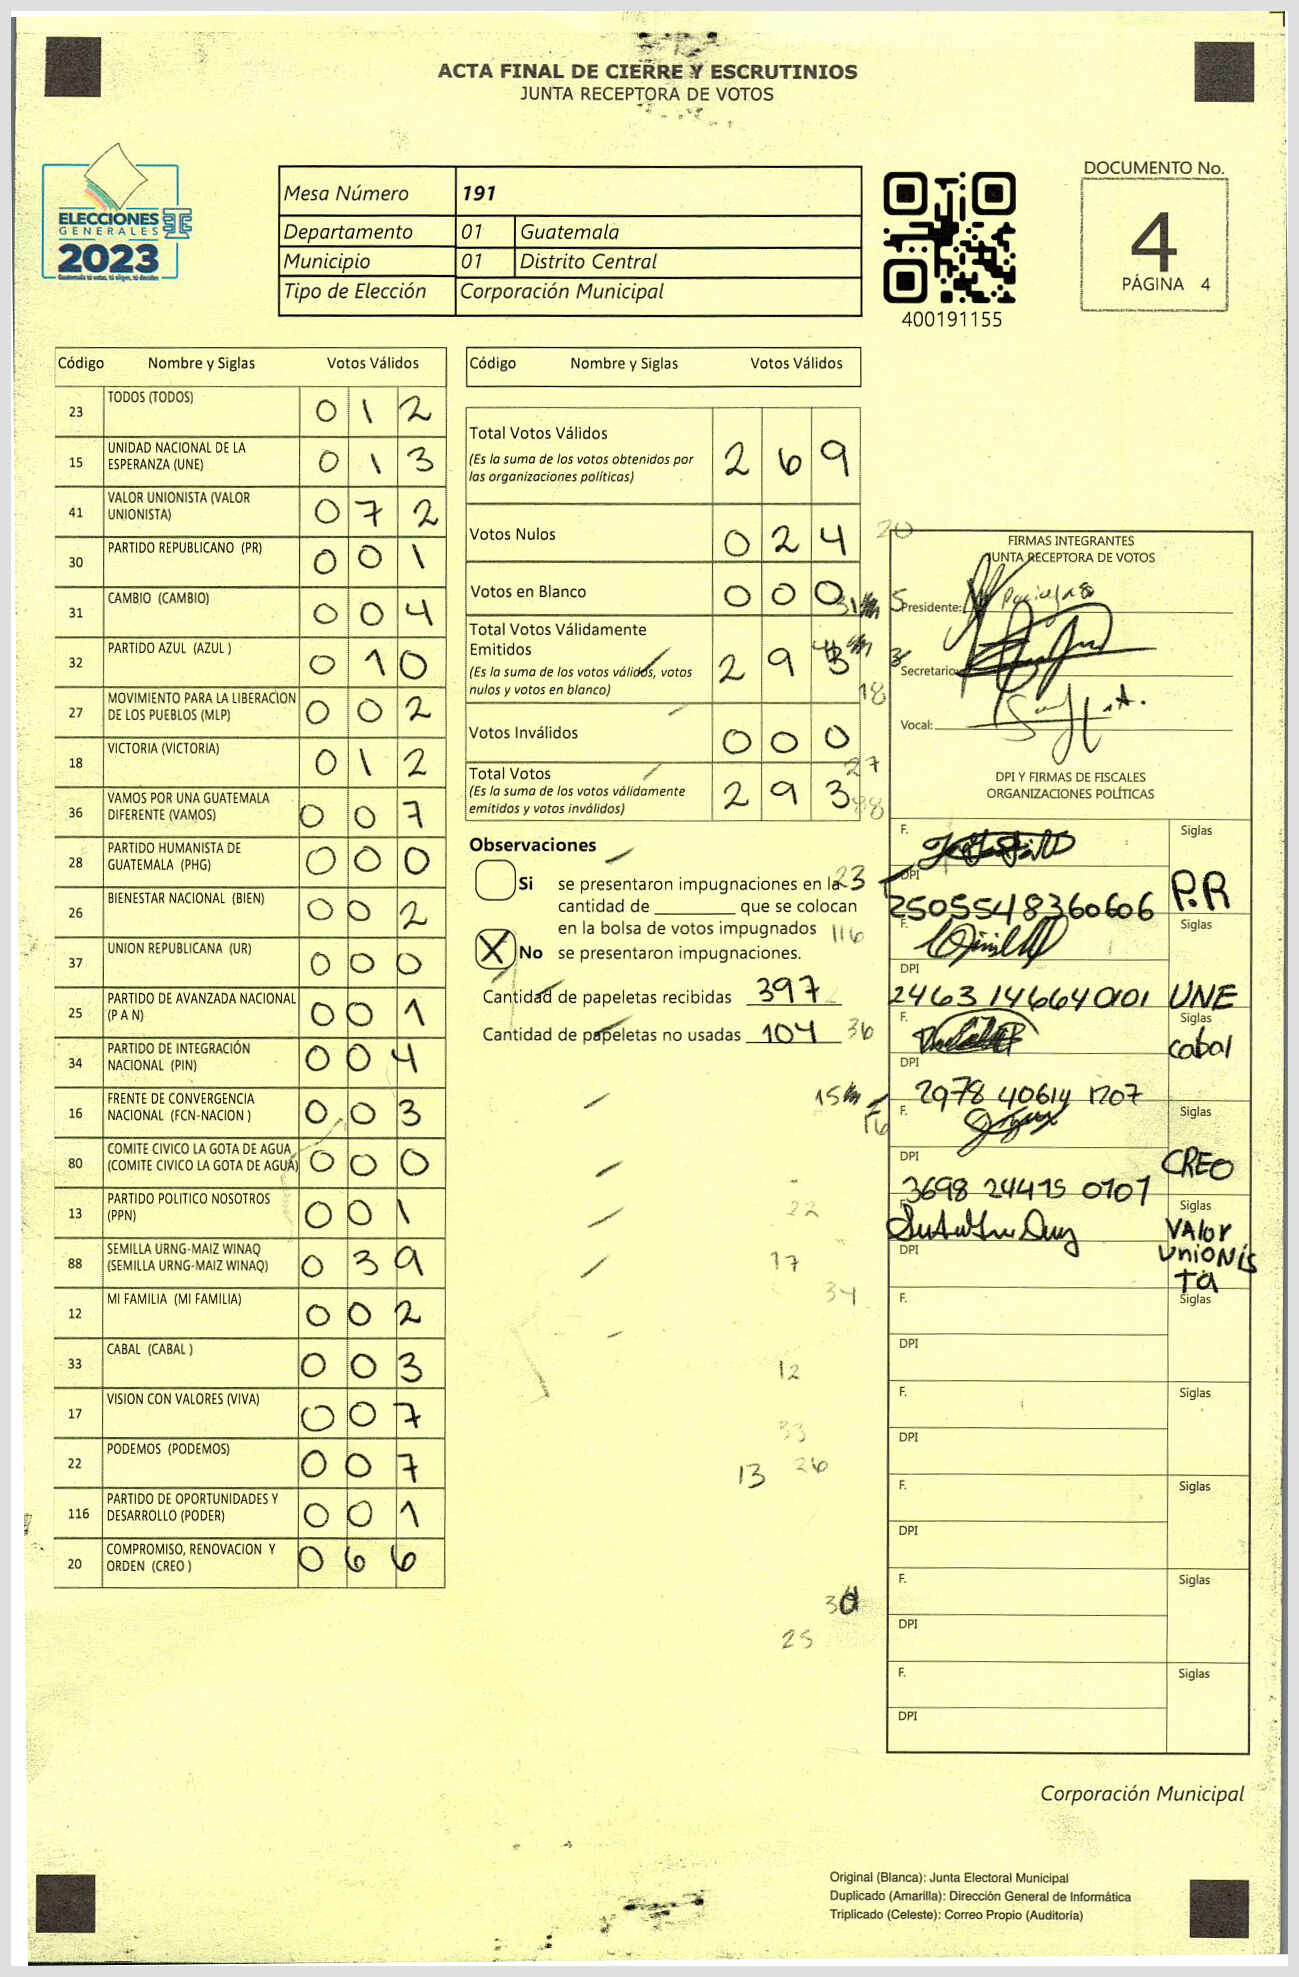 ACTA FINAL DE CIERRE Y ESCRUTINIOS
JUNTA RECEPTORA DE VOTOS
ELECCIONES
GENERALES
2023
Guatemala tú votas, tú eliges, tú decides
Mesa Número 191
Departamento 01 Guatemala
Municipio 01 Distrito Central
Tipo de Elección Corporación Municipal
400191155
DOCUMENTO No.
4
PÁGINA 4
Código Nombre y Siglas Votos Válidos
23 TODOS (TODOS) 0 1 2
15 UNIDAD NACIONAL DE LA ESPERANZA (UNE) 0 1 3
41 VALOR UNIONISTA (VALOR UNIONISTA) 0 7 2
30 PARTIDO REPUBLICANO (PR) 0 0 1
31 CAMBIO (CAMBIO) 0 0 4
32 PARTIDO AZUL (AZUL ) 0 1 0
27 MOVIMIENTO PARA LA LIBERACION DE LOS PUEBLOS (MLP) 0 0 2
18 VICTORIA (VICTORIA) 0 1 2
36 VAMOS POR UNA GUATEMALA DIFERENTE (VAMOS) 0 0 7
28 PARTIDO HUMANISTA DE GUATEMALA (PHG) 0 0 0
26 BIENESTAR NACIONAL (BIEN) 0 0 2
37 UNION REPUBLICANA (UR) 0 0 0
25 PARTIDO DE AVANZADA NACIONAL (P A N) 0 0 1
34 PARTIDO DE INTEGRACIÓN NACIONAL (PIN) 0 0 4
16 FRENTE DE CONVERGENCIA NACIONAL (FCN-NACION ) 0 0 3
80 COMITE CIVICO LA GOTA DE AGUA (COMITE CIVICO LA GOTA DE AGUA) 0 0 0
13 PARTIDO POLITICO NOSOTROS (PPN) 0 0 1
88 SEMILLA URNG-MAIZ WINAQ (SEMILLA URNG-MAIZ WINAQ) 0 3 9
12 MI FAMILIA (MI FAMILIA) 0 0 2
33 CABAL (CABAL ) 0 0 3
17 VISION CON VALORES (VIVA) 0 0 7
22 PODEMOS (PODEMOS) 0 0 7
116 PARTIDO DE OPORTUNIDADES Y DESARROLLO (PODER) 0 0 1
20 COMPROMISO, RENOVACION Y ORDEN (CREO ) 0 6 6
Código Nombre y Siglas Votos Válidos
Total Votos Válidos 2 6 9
(Es la suma de los votos obtenidos por
las organizaciones políticas)
Votos Nulos 0 2 4
Votos en Blanco 0 0 0
Total Votos Válidamente
Emitidos 2 9 3
(Es la suma de los votos válidos, votos
nulos y votos en blanco)
Votos Inválidos 0 0 0
Total Votos 2 9 3
(Es la suma de los votos válidamente
emitidos y votos inválidos)
Observaciones
Si se presentaron impugnaciones en la
cantidad de ________ que se colocan
en la bolsa de votos impugnados
X No se presentaron impugnaciones.
Cantidad de papeletas recibidas 397
Cantidad de papeletas no usadas 104
20
31
18
27
88
23
116
36
15
16
22
17
34
12
33
13 26
30
25
FIRMAS INTEGRANTES
JUNTA RECEPTORA DE VOTOS
Presidente:
Secretario:
Vocal:
DPI Y FIRMAS DE FISCALES
ORGANIZACIONES POLÍTICAS
F. Siglas
DPI 2505548360606 P.R
F. Siglas
DPI 2463146640101 UNE
F. Siglas
DPI 2978 40614 1707 Cabal
F. Siglas
DPI 3698 24415 0101 CREO
Siglas
DPI Valor Unionista
F. Siglas
DPI
F. Siglas
DPI
F. Siglas
DPI
F. Siglas
DPI
F. Siglas
DPI
Corporación Municipal
Original (Blanca): Junta Electoral Municipal
Duplicado (Amarilla): Dirección General de Informática
Triplicado (Celeste): Correo Propio (Auditoria)